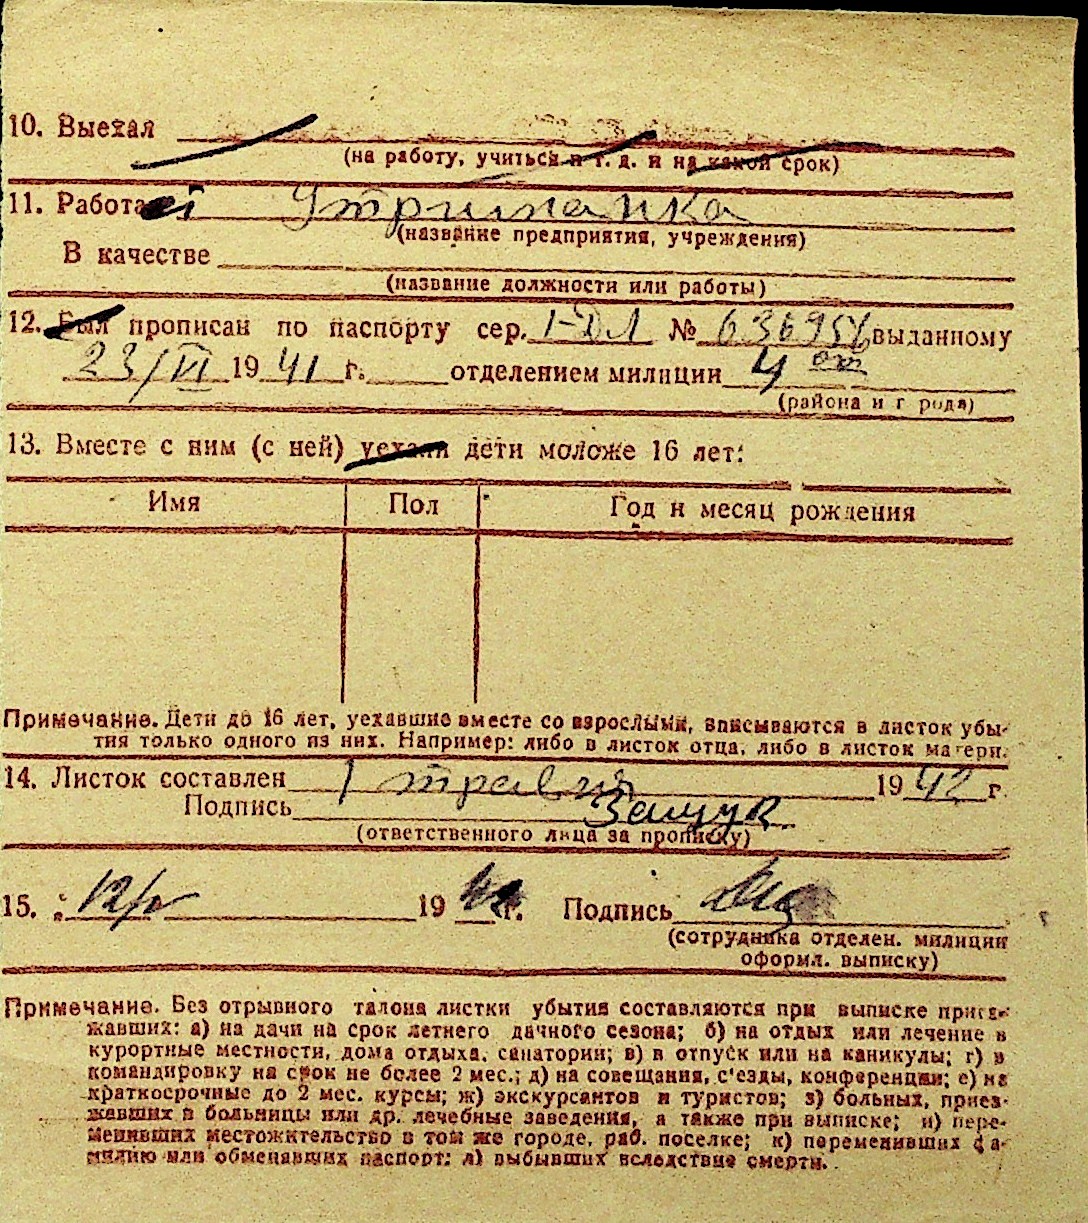 10. Выехал
(на работу, учиться и т. д. и на какой срок)
11. Работает Утриманка
(название предприятия, учреждения)
В качестве
(название должности или работы)
12. Был прописан по паспорту сер. 1-ДЛ № 636956 выданному
23/VI 1941 г. отделением милиции 4 от
(района и города)
13. Вместе с ним (с ней) уехали дети моложе 16 лет:
Имя Пол Год и месяц рождения
Примечание. Дети до 16 лет, уехавшие вместе со взрослыми, вписываются в листок убы-
тия только одного из них. Например: либо в листок отца, либо в листок матери.
14. Листок составлен 1 травня 1942 г.
Подпись Защук
(ответственного лица за прописку)
15. 12/ 1942 г. Подпись
(сотрудника отделен. милиции
оформл. выписку)
Примечание. Без отрывного талона листки убытия составляются при выписке приез-
жавших: а) на дачи на срок летнего дачного сезона; б) на отдых или лечение в
курортные местности, дома отдыха, санатории; в) в отпуск или на каникулы; г) в
командировку на срок не более 2 мес.; д) на совещания, с'езды, конференции; е) на
краткосрочные до 2 мес. курсы; ж) экскурсантов и туристов; з) больных, приез-
жавших в больницы или др. лечебные заведения, а также при выписке; и) пере-
менивших местожительство в том же городе, раб. поселке; к) переменивших фа-
милию или обменявших паспорт; л) выбывших вследствие смерти.